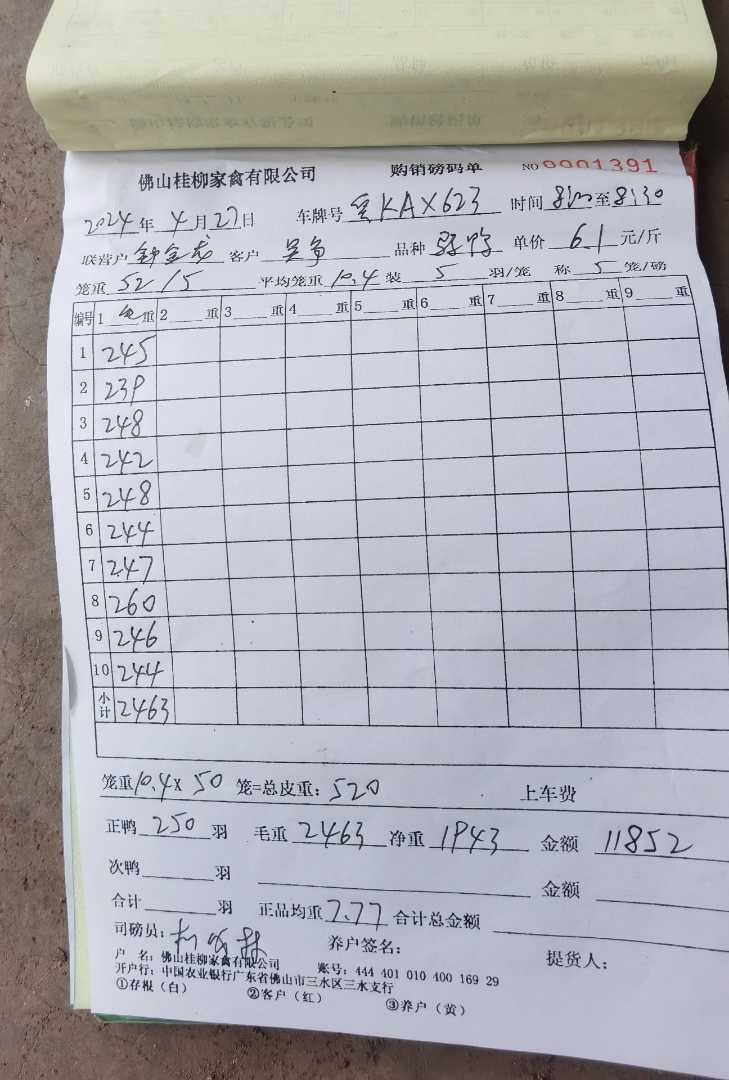 佛山桂柳家禽有限公司 购销磅码单 NO 0001391
2024年4月27日 车牌号 KAX623 时间 8:00至8:30
联营户 客户 吴争 品种 单价 6.1 元/斤
笼重 52/5 平均笼重 10.4 装 5 羽/笼 称 5 笼/磅
编号 1 重 2 重 3 重 4 重 5 重 6 重 7 重 8 重 9 重
1 245
2 239
3 248
4 242
5 248
6 244
7 247
8 260
9 246
10 244
小计 2463
笼重10.4×50 笼=总皮重:520 上车费
正鸭 250 羽 毛重 2463 净重 1943 金额 11852
次鸭 羽 金额
合计 羽 正品均重 7.77 合计总金额
司磅员: 养户签名: 提货人:
户 名:佛山桂柳家禽有限公司 账号:444 401 010 400 169 29
开户行:中国农业银行广东省佛山市三水区三水支行
①存根(白) ②客户(红) ③养户(黄)